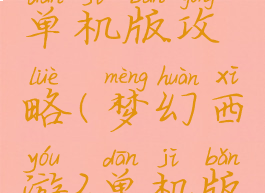 dān jī bǎn gōng
单机版攻
lüè mèng huàn xī
略(梦幻西
yóu dān jī bǎn
游)单机版